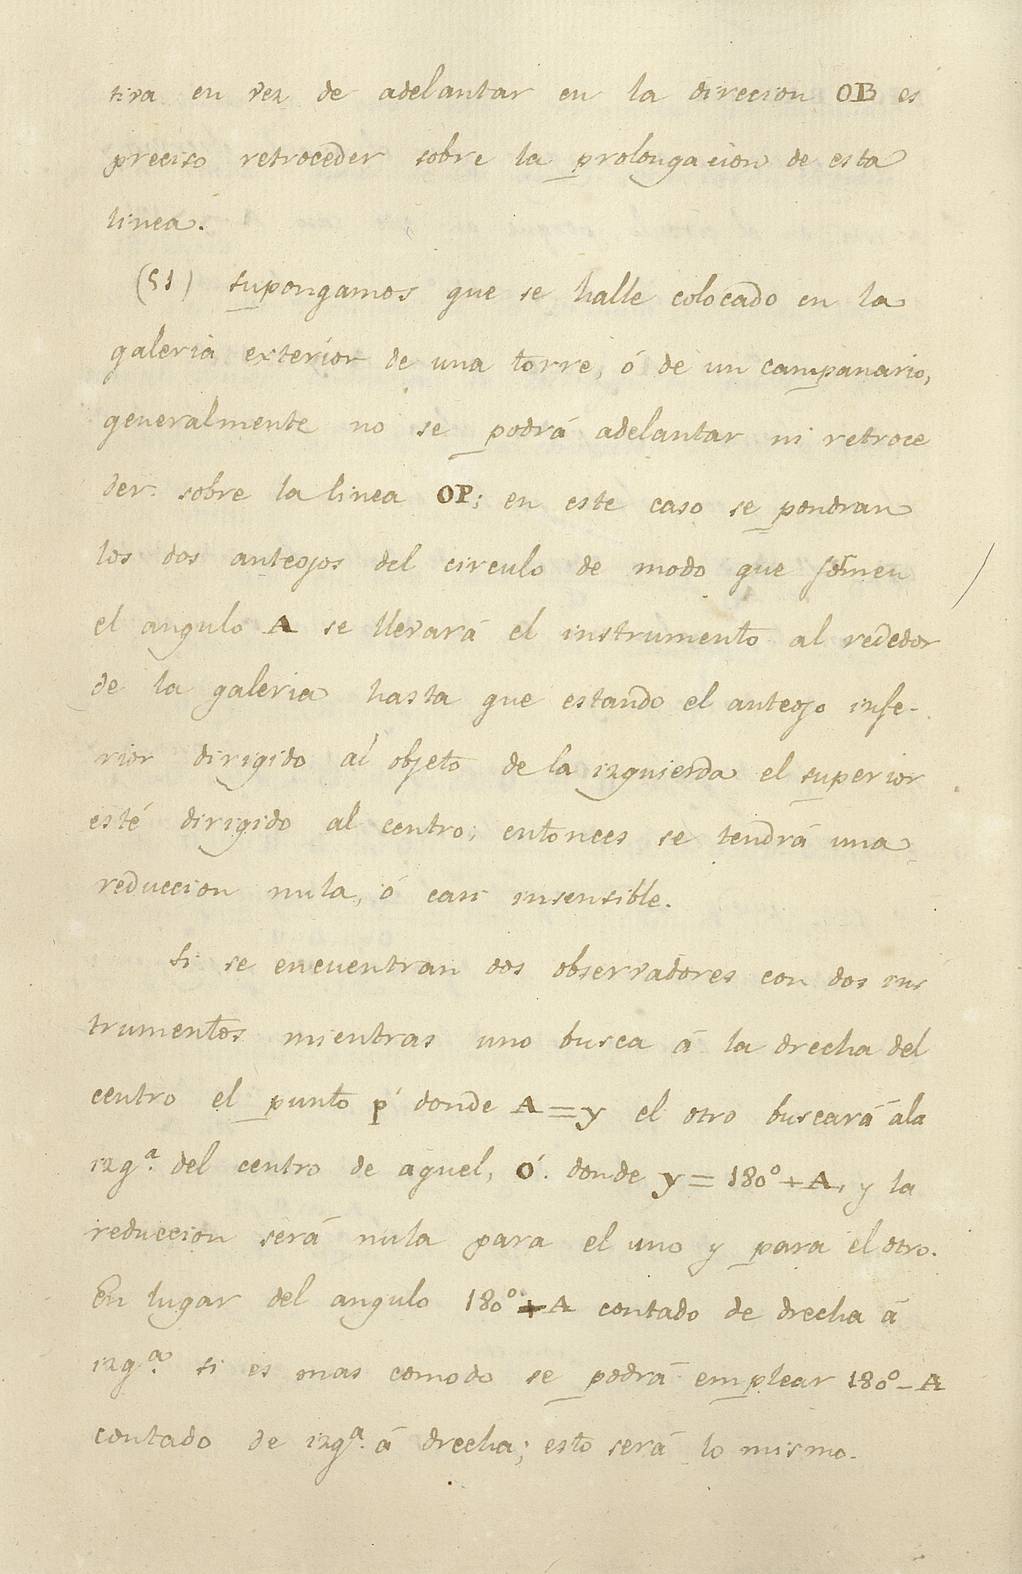 tiva en vez de adelantar en la direcion OB es
preciso retroceder sobre la prolongacion de esta
linea.
(51) supongamos que se halle colocado en la
galeria exterior de una torre, ó de un campanario,
generalmente no se podrá adelantar ni retroce
der sobre la linea OP; en este caso se pondran
los dos anteojos del circulo de modo que formen
el angulo A se llevará el instrumento al rededor
de la galeria hasta que estando el anteojo infe-
rior dirigido al objeto de la izquierda el superior
esté dirigido al centro; entonces se tendrá una
reduccion nula, ó casi insensible.
Si se encuentran dos observadores con dos ins
trumentos mientras uno busca á la drecha del
centro el punto p' donde A=y el otro buscará ala
izqª. del centro de aquel, ó. donde y=180°+A, y la
reduccion será nula para el uno y para el otro.
En lugar del angulo 180°+A contado de drecha á
izqª. si es mas comodo se podrá emplear 180°-A
contado de izqª. á drecha; esto será lo mismo.